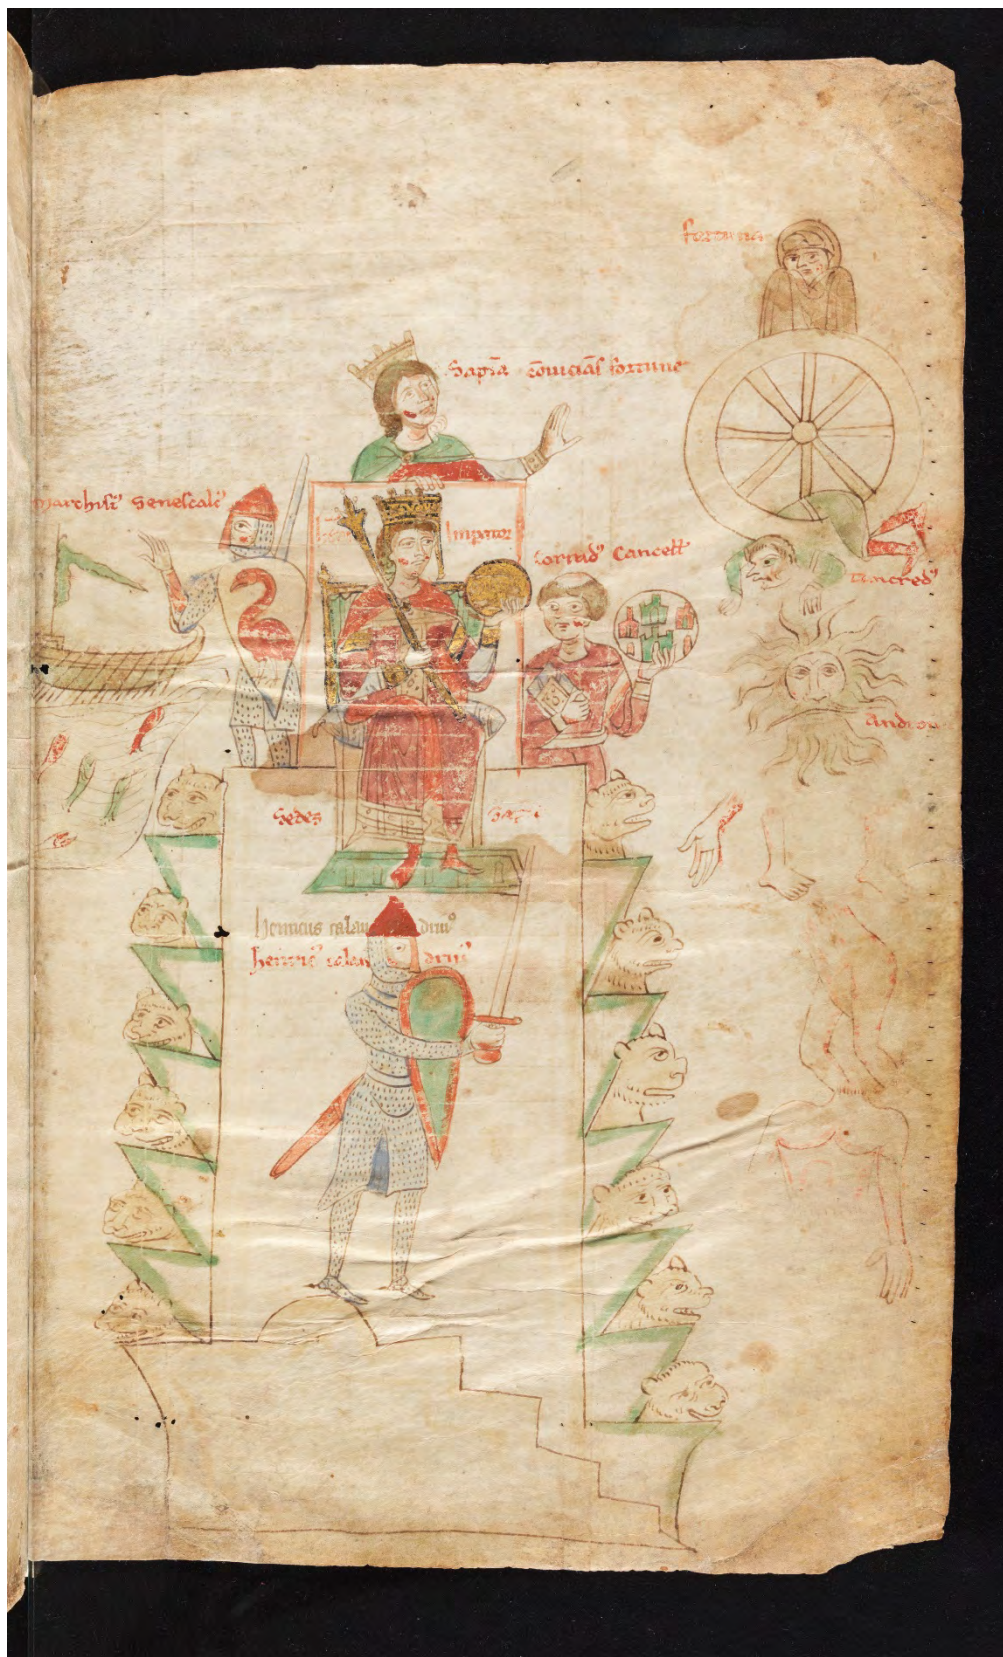 fortuna
Sapīa cōvīcīās fortune
Marchis᷒ Senescalc᷒
Imp̄ator
Corrad᷒ Cancell̄
tancred᷒
Andro
Sedes Sap̄
henricus calan drin᷒
henric᷒ calan drin᷒